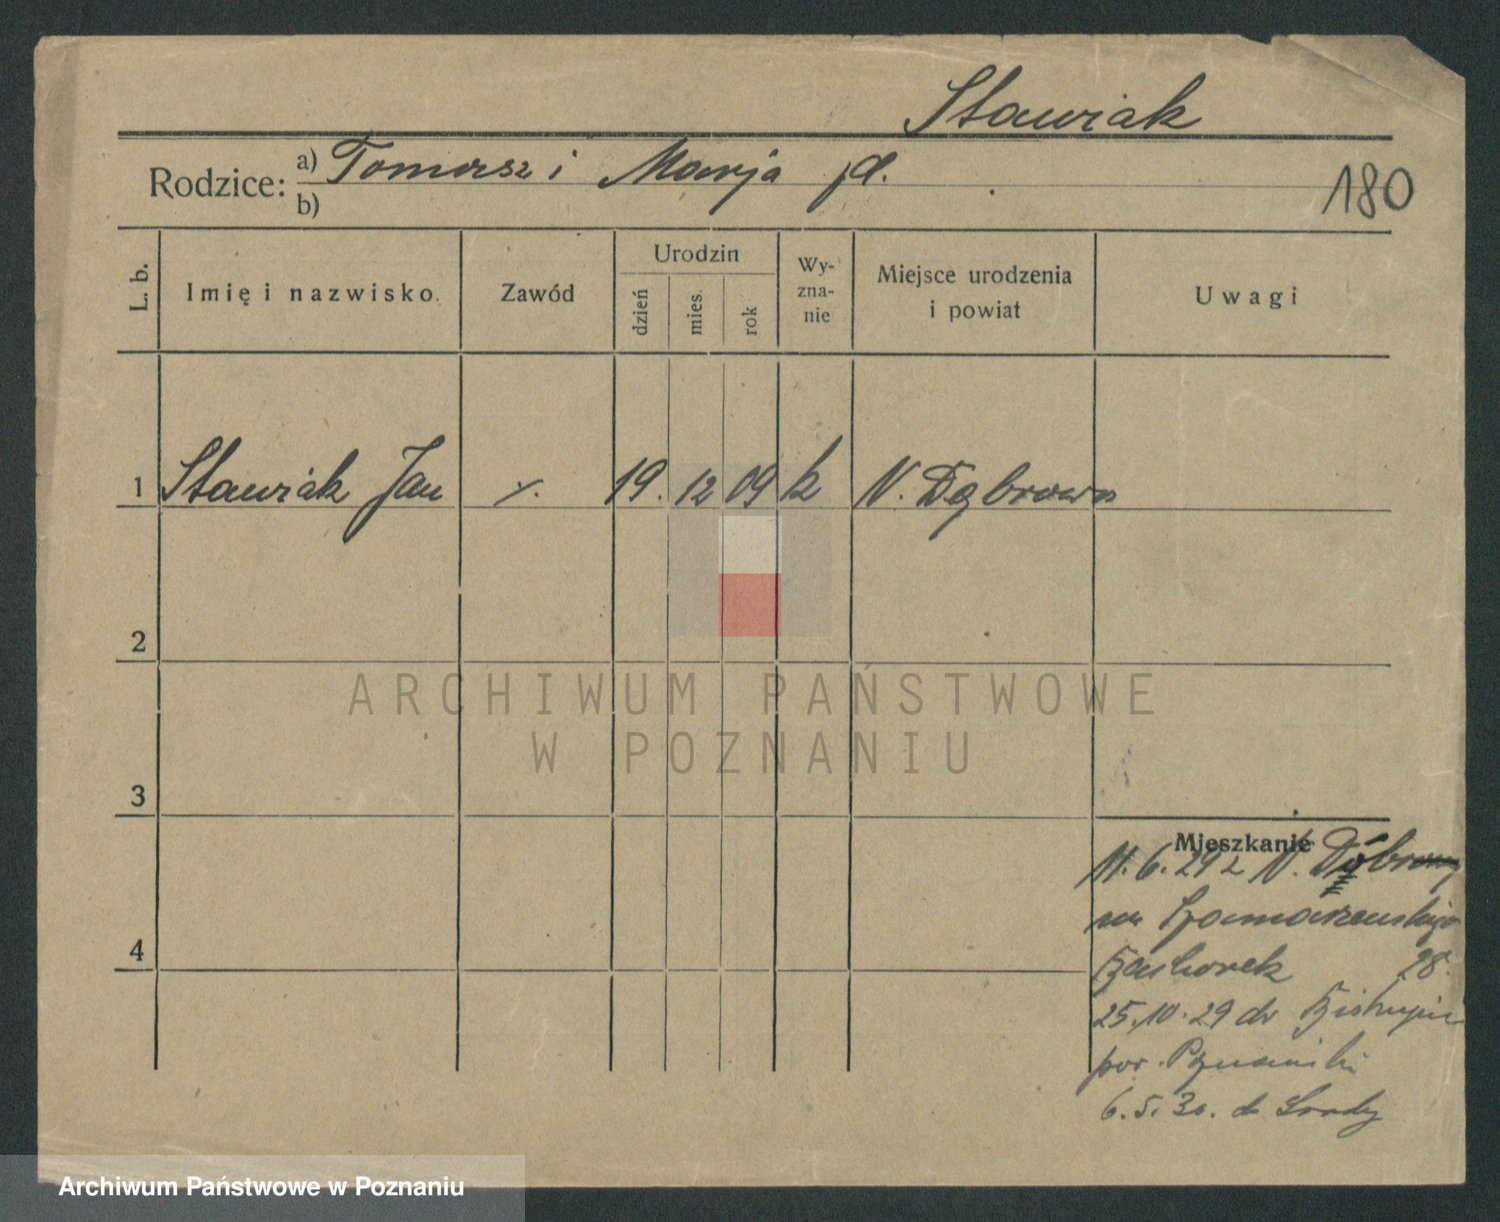 Stawiak
Rodzice: a) Tomasz i Marja
b)
180
L. b.
Imię i nazwisko.
Zawód
Urodzin
dzień
mies.
rok
Wy-
zna-
nie
Miejsce urodzenia
i powiat
Uwagi
1 Stawiak Jan 19. 12 09 k N. Dąbrowa
2
ARCHIWUM PAŃSTWOWE
W POZNANIU
3
Mieszkanie
11.6.29 z N. Dąbrowy
28.
25.10.29 do Biskupic
pow. Poznański
6.5.30. do Środy
4
Archiwum Państwowe w Poznaniu